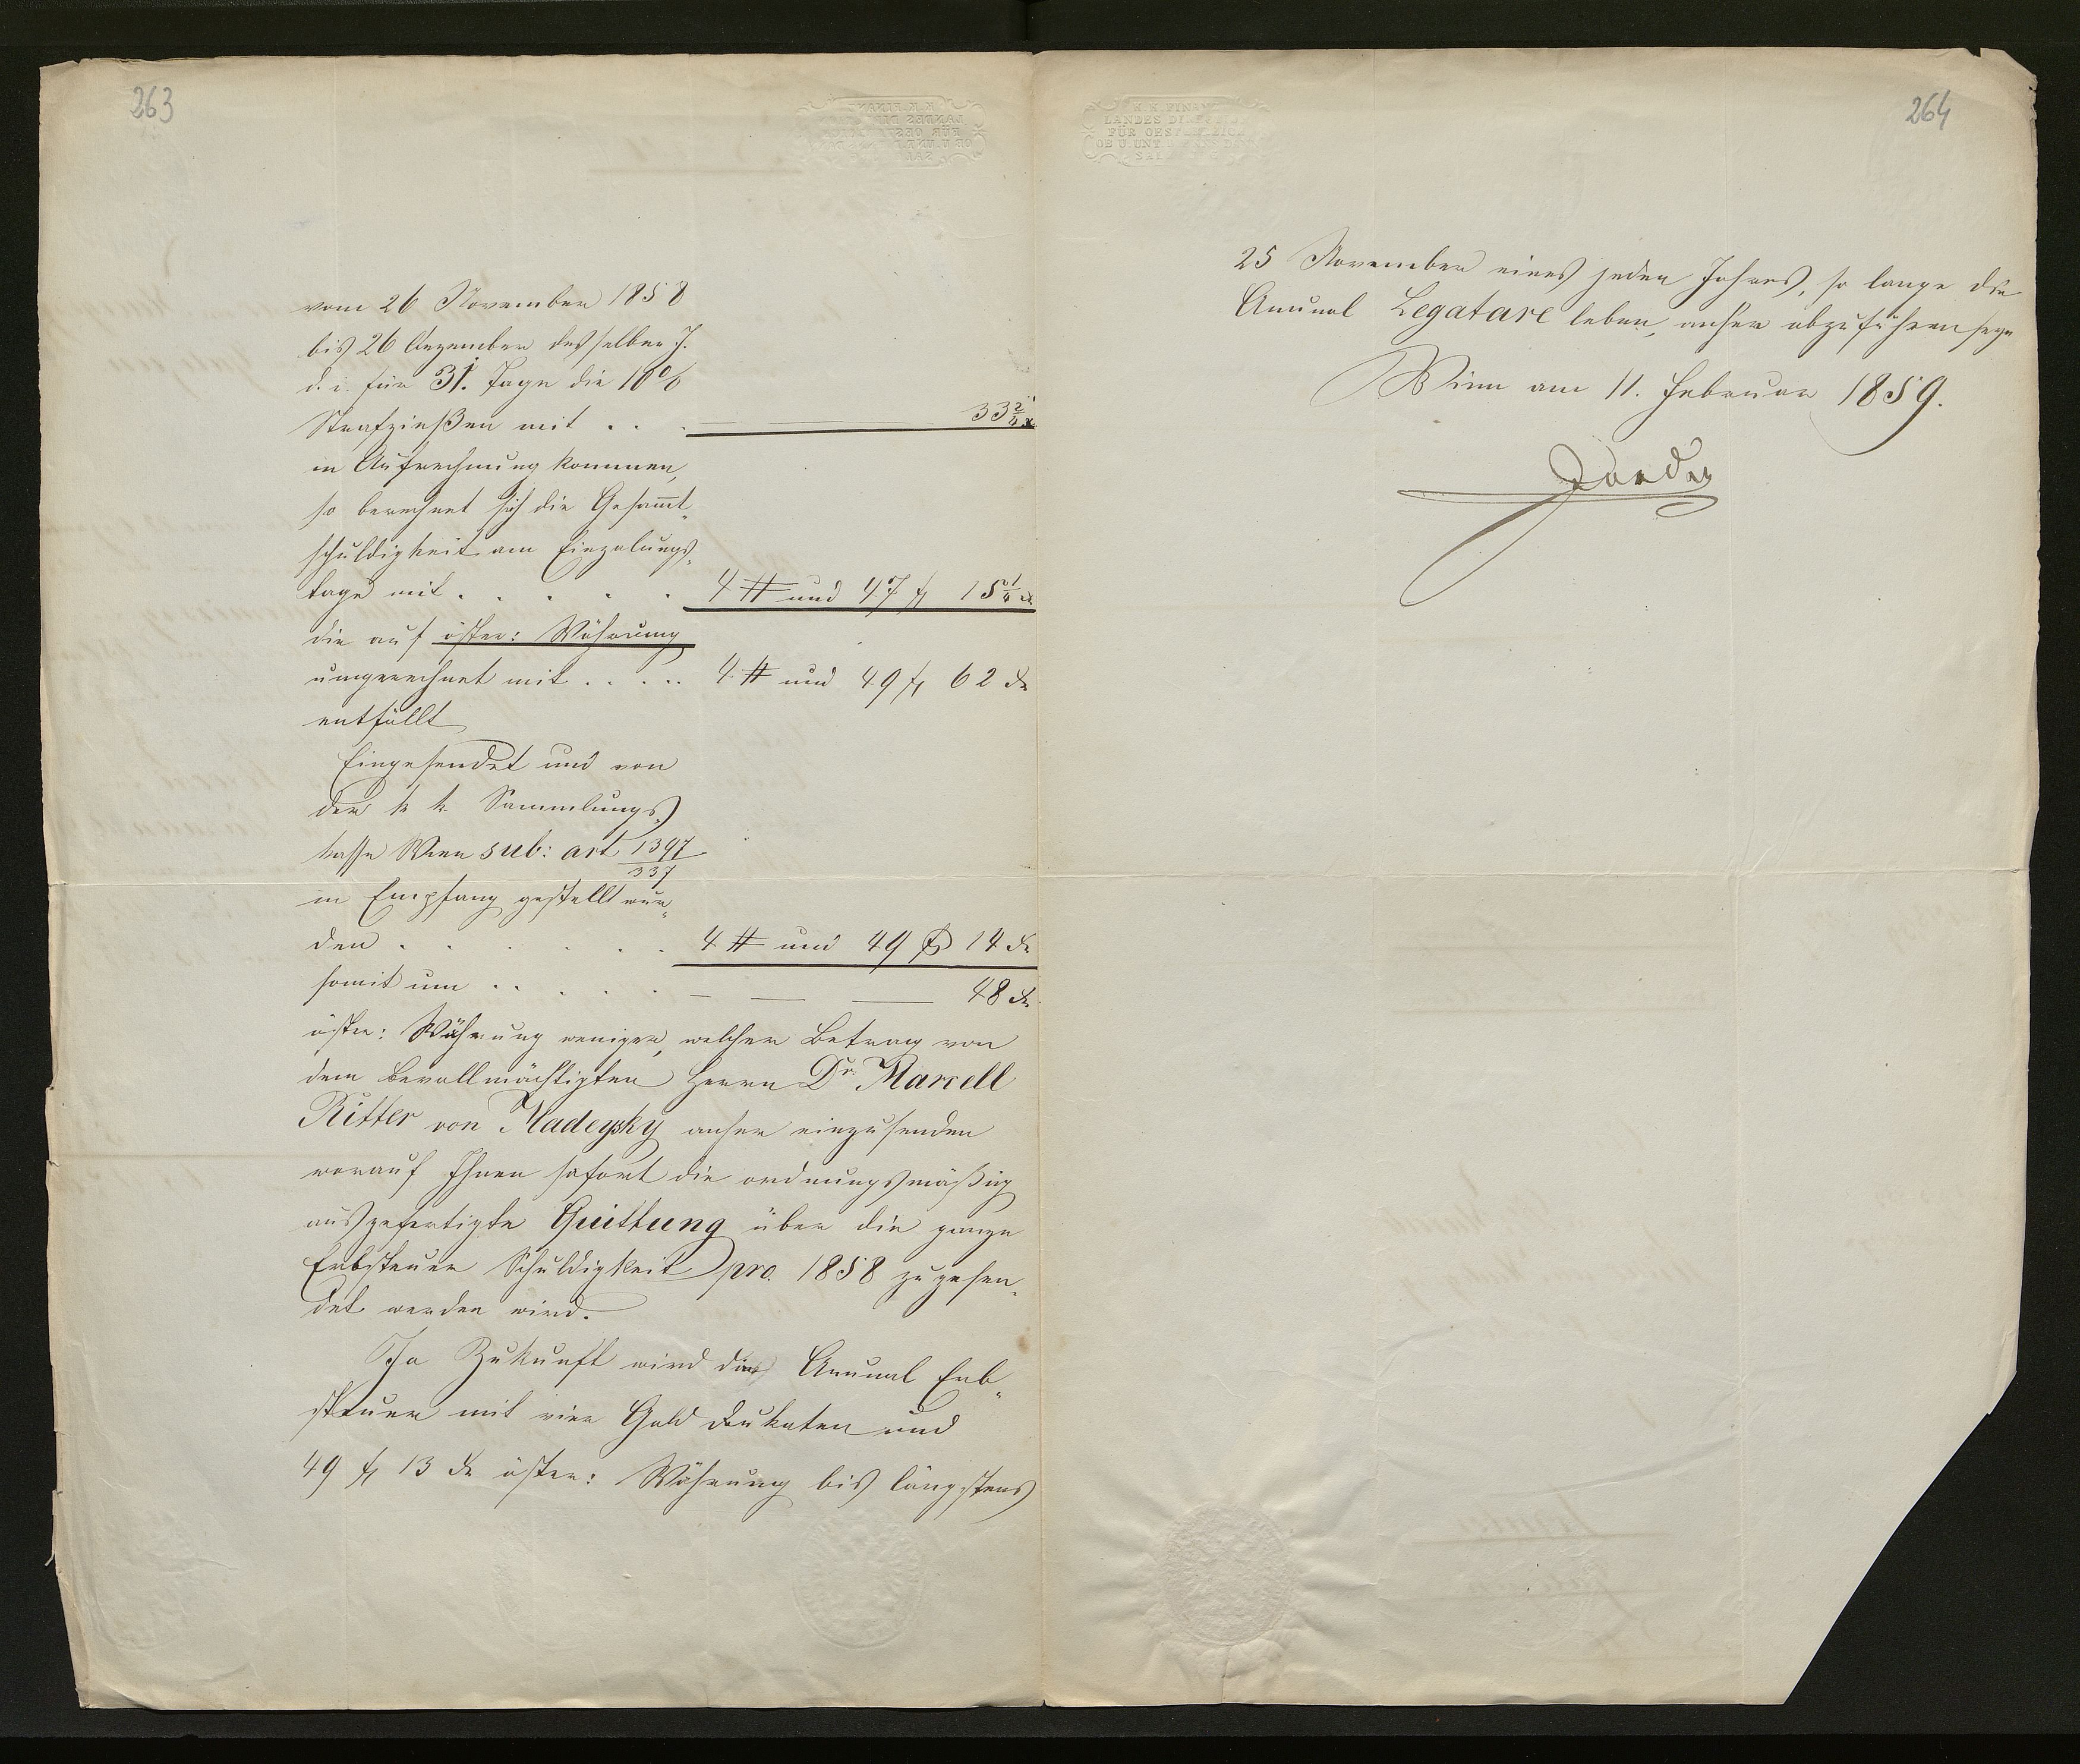 263
vom 26 November 1858
bis 26 Dezember desselben J.
d. i. für 31. Tage die 10%
Strafzinßen mit . . . 33 2/4 x
in Aufrechnung kommen,
so berechnet sich die Gesam̄t„
schuldigkeit am Einzalungs„
tage mit . . . . . 4 # und 47 f 15 1/4 x
die auf öster: Währung
umgerechnet mit . . . . . 4 # und 49 f 62 xr
entfällt
Eingesendet und von
der k k Sammlungs„
kasse Wien sub: art 1397
337
in Empfang gestellt wur„
den . . . . . . 4 # und 49 f 14 xr
somit um . . . . . — — — 48 xr
öster: Währung weniger, welcher Betrag von
dem Bevollmächtigten Herrn Dr. Marcell
Ritter von Madeysky anher einzusenden
worauf Ihnen sofort die ordnungsmäßig
ausgefertigte Quittung über die ganze
Erbsteuer Schuldigkeit pro. 1858 zugesen„
det werden wird.
In Zukunft wird die Annual Erb„
steuer mit vier Gold Dukaten und
49 f 13 xr öster: Währung bis längstens
264
K. K. FINANZ
LANDES DIRECTION
FÜR OESTERREICH
OB U. UNT. D. ENS
25 November eines jeden Jahres, so lange die
Annual Legatare leben, anher abzuführen seyn
Wien am 11. Februar 1859.